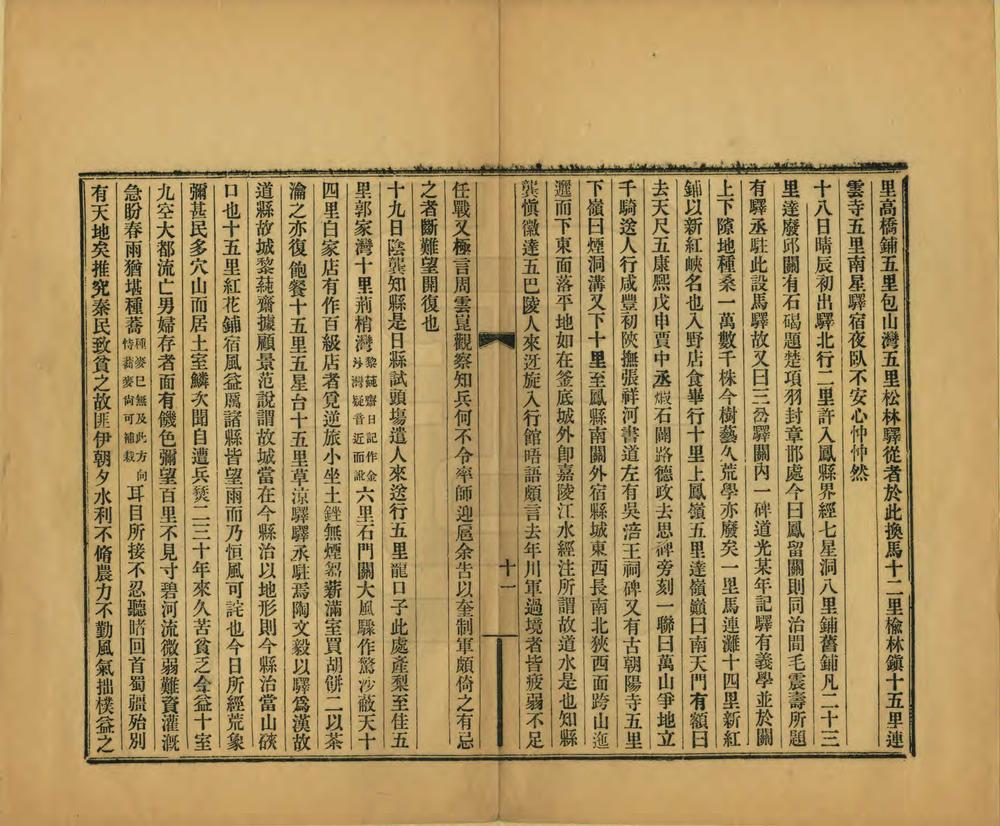 里高橋鋪五里包山灣五里松林驛從者於此換馬十二里榆林鎮十五里連
雲寺五里南星驛宿夜臥不安心忡忡然
十八日晴辰初出驛北行二里許入鳳縣界經七星洞八里鋪舊鋪凡二十三
里達廢邱關有石碣題楚項羽封章邯處今曰鳳留關則同治間毛震壽所題
有驛丞駐此設馬驛故又曰三岔驛關內一碑道光某年記驛有義學並於關
上下隙地種桑一萬數千株今樹藝久荒學亦廢矣一里馬連灘十四里新紅
鋪以新紅峽名也入野店食畢行十里上鳳嶺五里達嶺巔曰南天門有額曰
去天尺五康熙戊申賈中丞煅石闢路德政去思碑旁刻一聯曰萬山爭地立
千騎送人行咸豐初陝撫張祥河書道左有吳涪王祠碑又有古朝陽寺五里
下嶺曰煙洞溝又下十里至鳳縣南關外宿縣城東西長南北狹西面跨山迤
邐而下東面落平地如在釜底城外卽嘉陵江水經注所謂故道水是也知縣
龔愼徽達五巴陵人來迓旋入行館晤語頗言去年川軍過境者皆疲弱不足
十一
任戰又極言周雲崑觀察知兵何不令率師迎扈余告以奎制軍頗倚之有忌
之者斷難望開復也
十九日陰龔知縣是日縣試頭塲遣人來送行五里龍口子此處產梨至佳五
里郭家灣十里荊梢灣黎蒓齋日記作金沙灣疑音近而訛六里石門關大風驟作驚沙蔽天十
四里白家店有作百級店者覓逆旅小坐土銼無煙芻薪滿室買胡餅二以茶
瀹之亦復飽餐十五里五星台十五里草涼驛驛丞駐焉陶文毅以驛爲漢故
道縣故城黎蒓齋據顧景范說謂故城當在今縣治以地形則今縣治當山硤
口也十五里紅花鋪宿風益厲諸縣皆望雨而乃恒風可詫也今日所經荒象
彌甚民多穴山而居土室鱗次聞自遭兵燹二三十年來久苦貧乏今益十室
九空大都流亡男婦存者面有饑色彌望百里不見寸碧河流微弱難資灌漑
急盼春雨猶堪種蕎種麥已無及此方恃蕎麥尙可補栽向耳目所接不忍聽睹回首蜀疆殆別
有天地矣推究秦民致貧之故匪伊朝夕水利不脩農力不勤風氣拙樸益之